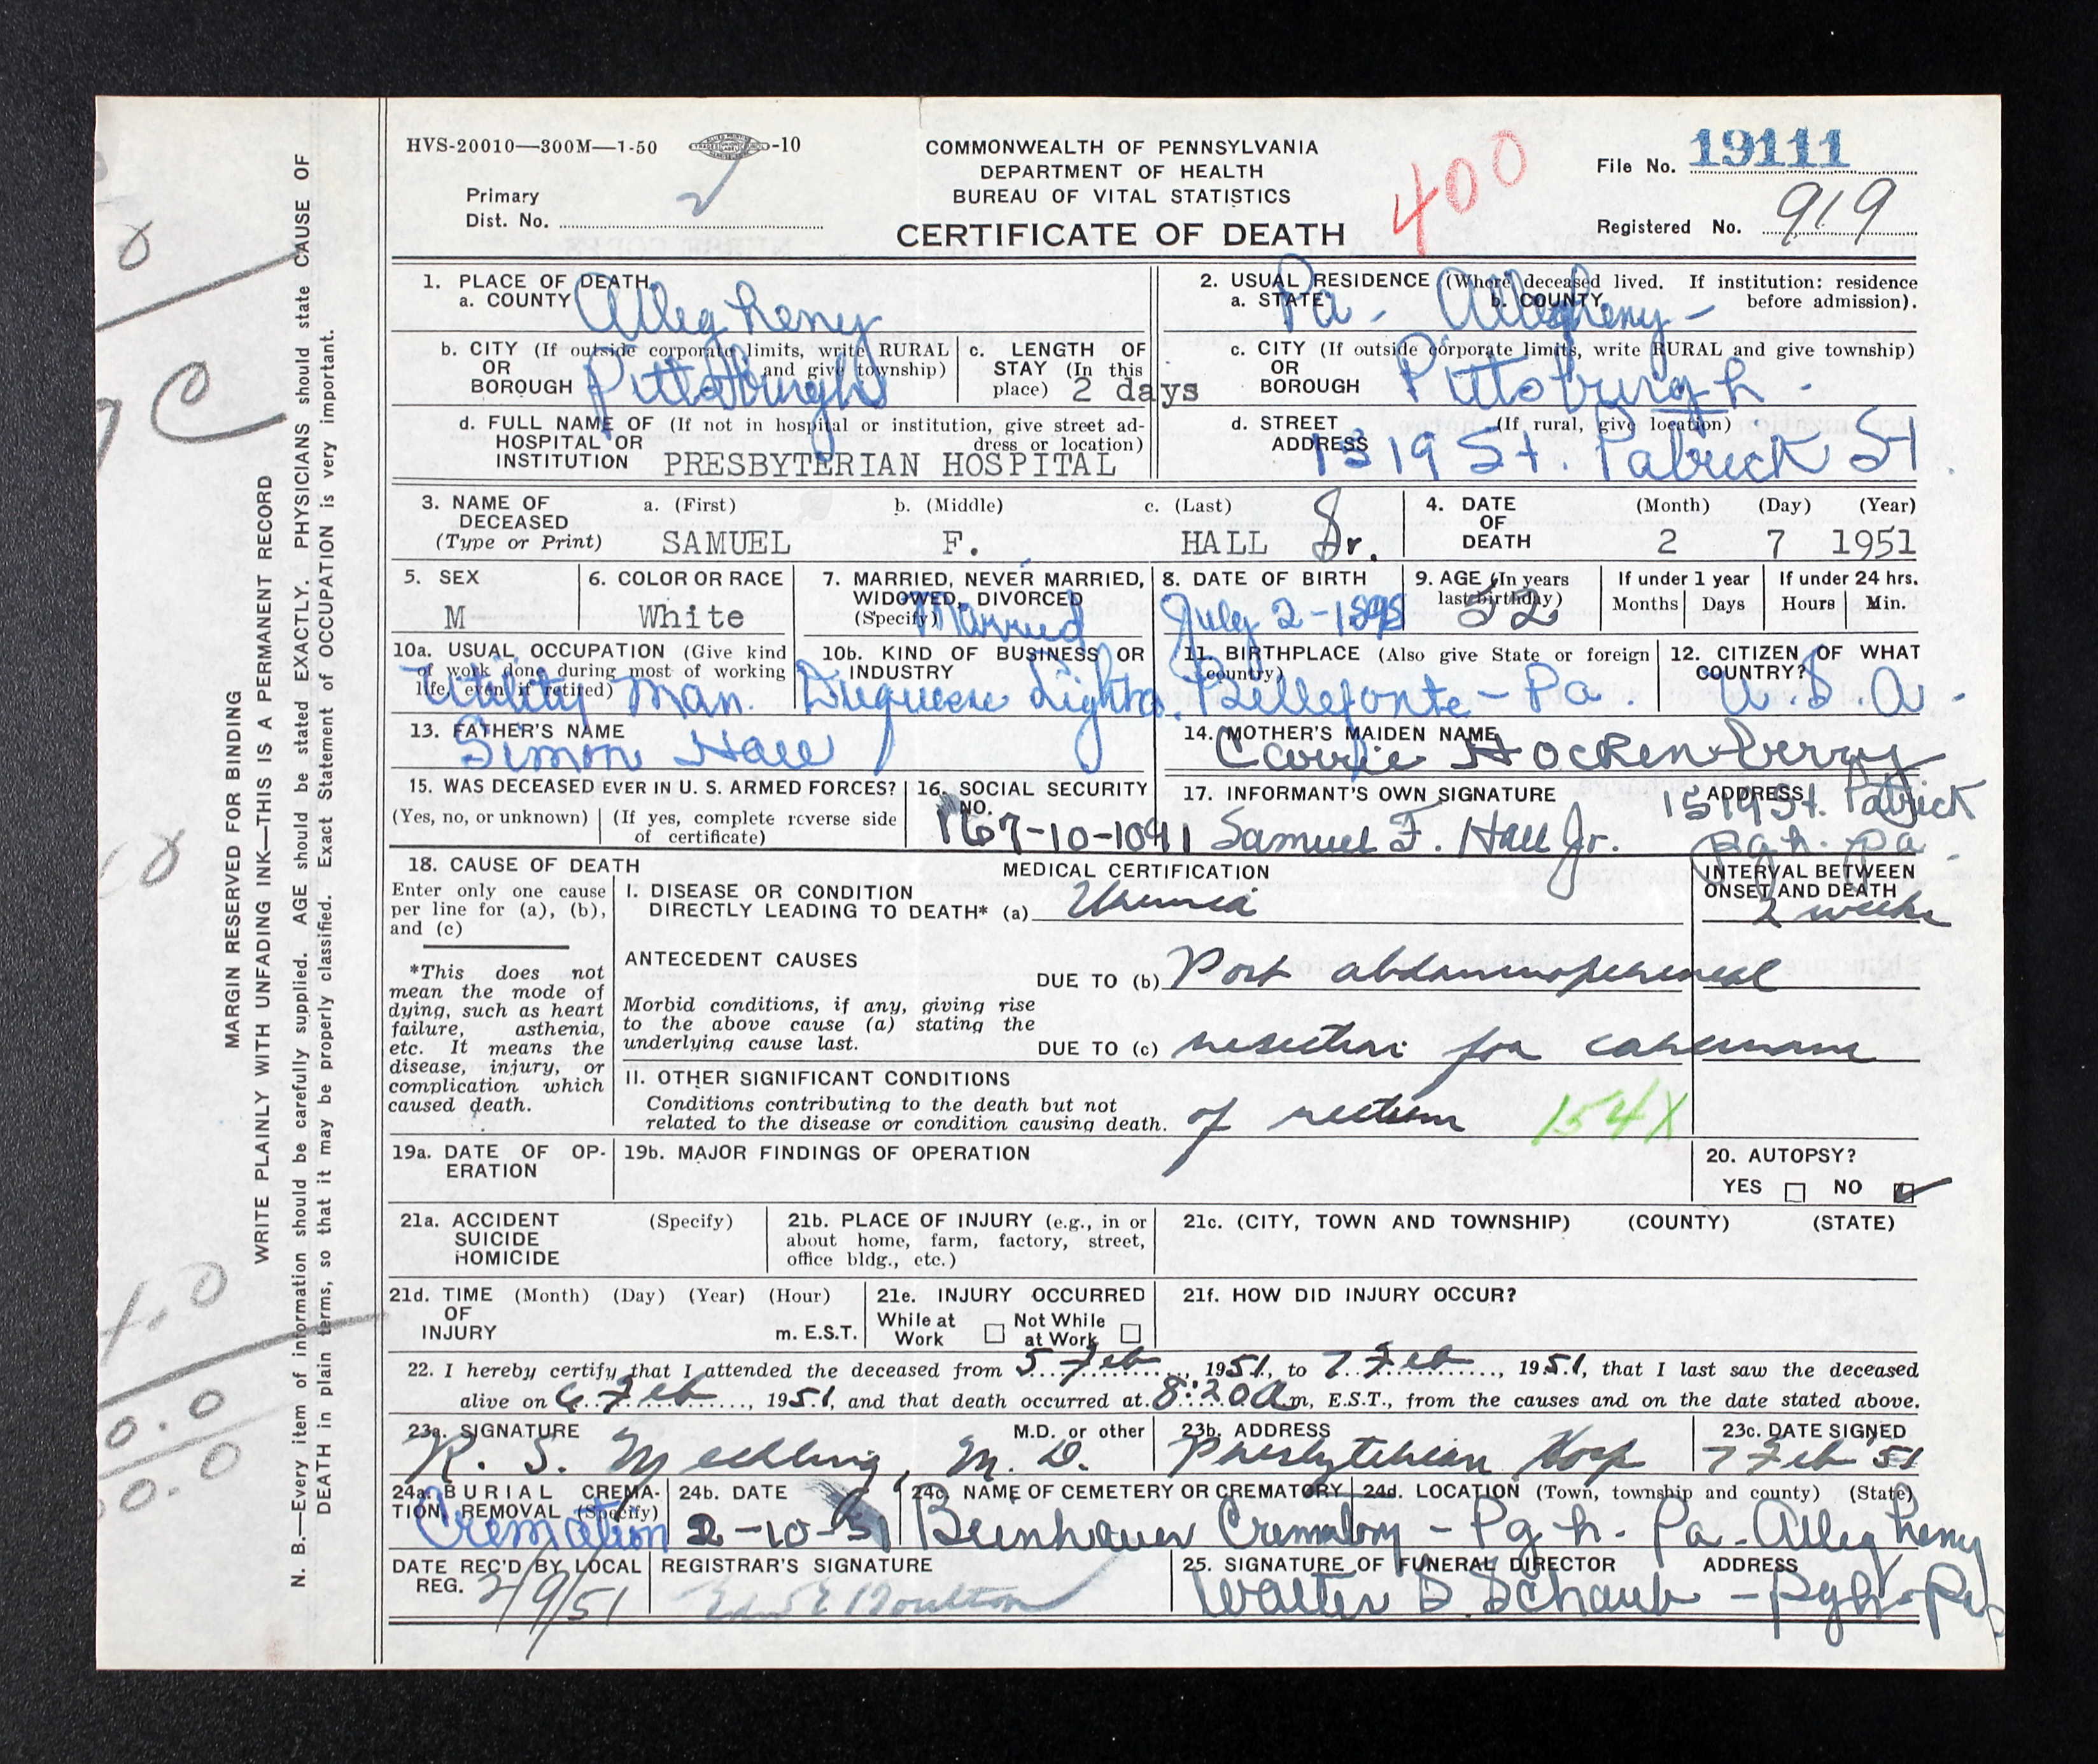 HVS-20010—300M—1-50 -10
COMMONWEALTH OF PENNSYLVANIA
DEPARTMENT OF HEALTH
BUREAU OF VITAL STATISTICS
CERTIFICATE OF DEATH
400
File No. 19111
Primary
Dist. No.
Registered No. 919
1. PLACE OF DEATH
a. COUNTY Allegheny
2. USUAL RESIDENCE (Where deceased lived. If institution: residence before admission).
a. STATE Pa. b. COUNTY Allegheny
b. CITY (If outside corporate limits, write RURAL and give township)
OR
BOROUGH Pittsburgh
c. LENGTH OF
STAY (In this
place) 2 days
c. CITY (If outside corporate limits, write RURAL and give township)
OR
BOROUGH Pittsburgh
d. FULL NAME OF (If not in hospital or institution, give street address or location)
HOSPITAL OR
INSTITUTION PRESBYTERIAN HOSPITAL
d. STREET (If rural, give location)
ADDRESS 1519 St. Patrick St.
3. NAME OF
DECEASED
(Type or Print)
a. (First) b. (Middle) c. (Last)
SAMUEL F. HALL Sr.
4. DATE
OF
DEATH
(Month) (Day) (Year)
2 7 1951
5. SEX
M
6. COLOR OR RACE
White
7. MARRIED, NEVER MARRIED,
WIDOWED, DIVORCED
(Specify) Married
8. DATE OF BIRTH
July 2-1898
9. AGE (In years
last birthday)
52
If under 1 year
Months Days
If under 24 hrs.
Hours Min.
10a. USUAL OCCUPATION (Give kind
of work done during most of working
life, even if retired)
Utility Man.
10b. KIND OF BUSINESS OR
INDUSTRY
Duquesne Light Co.
11. BIRTHPLACE (Also give State or foreign
country)
Bellefonte - Pa.
12. CITIZEN OF WHAT
COUNTRY?
U.S.A.
13. FATHER'S NAME
Simon Hall
14. MOTHER'S MAIDEN NAME
Carrie Hockenberry
15. WAS DECEASED EVER IN U. S. ARMED FORCES?
(Yes, no, or unknown) (If yes, complete reverse side
of certificate)
16. SOCIAL SECURITY
NO.
167-10-1091
17. INFORMANT'S OWN SIGNATURE ADDRESS
Samuel F. Hall Jr. 1519 St. Patrick
Pgh. Pa.
18. CAUSE OF DEATH
Enter only one cause
per line for (a), (b),
and (c)
*This does not
mean the mode of
dying, such as heart
failure, asthenia,
etc. It means the
disease, injury, or
complication which
caused death.
MEDICAL CERTIFICATION
INTERVAL BETWEEN
ONSET AND DEATH
I. DISEASE OR CONDITION
DIRECTLY LEADING TO DEATH* (a) Uremia
2 weeks
ANTECEDENT CAUSES
DUE TO (b) Post abdominoperineal
Morbid conditions, if any, giving rise
to the above cause (a) stating the
underlying cause last.
DUE TO (c) resection for carcinoma
II. OTHER SIGNIFICANT CONDITIONS
Conditions contributing to the death but not
related to the disease or condition causing death.
of rectum 154X
19a. DATE OF OPERATION
19b. MAJOR FINDINGS OF OPERATION
20. AUTOPSY?
YES NO
21a. ACCIDENT (Specify)
SUICIDE
HOMICIDE
21b. PLACE OF INJURY (e.g., in or
about home, farm, factory, street,
office bldg., etc.)
21c. (CITY, TOWN AND TOWNSHIP) (COUNTY) (STATE)
21d. TIME (Month) (Day) (Year) (Hour)
OF
INJURY m. E.S.T.
21e. INJURY OCCURRED
While at Work Not While at Work
21f. HOW DID INJURY OCCUR?
22. I hereby certify that I attended the deceased from 5 Feb, 1951, to 7 Feb, 1951, that I last saw the deceased
alive on 6 Feb, 1951, and that death occurred at 8:20 a m, E.S.T., from the causes and on the date stated above.
23a. SIGNATURE M.D. or other
R. S. Mechling, M. D.
23b. ADDRESS
Presbyterian Hosp
23c. DATE SIGNED
7 Feb 51
24a. BURIAL CREMATION, REMOVAL (Specify)
Cremation
24b. DATE
2-10-51
24c. NAME OF CEMETERY OR CREMATORY
Beinhauer Crematory -
24d. LOCATION (Town, township and county) (State)
Pgh. Pa. Allegheny
DATE REC'D BY LOCAL
REG. 2/9/51
REGISTRAR'S SIGNATURE
25. SIGNATURE OF FUNERAL DIRECTOR ADDRESS
Walter D. Schaub - Pgh - Pa
MARGIN RESERVED FOR BINDING
WRITE PLAINLY WITH UNFADING INK—THIS IS A PERMANENT RECORD
N. B.—Every item of information should be carefully supplied. AGE should be stated EXACTLY. PHYSICIANS should state CAUSE OF
DEATH in plain terms, so that it may be properly classified. Exact Statement of OCCUPATION is very important.